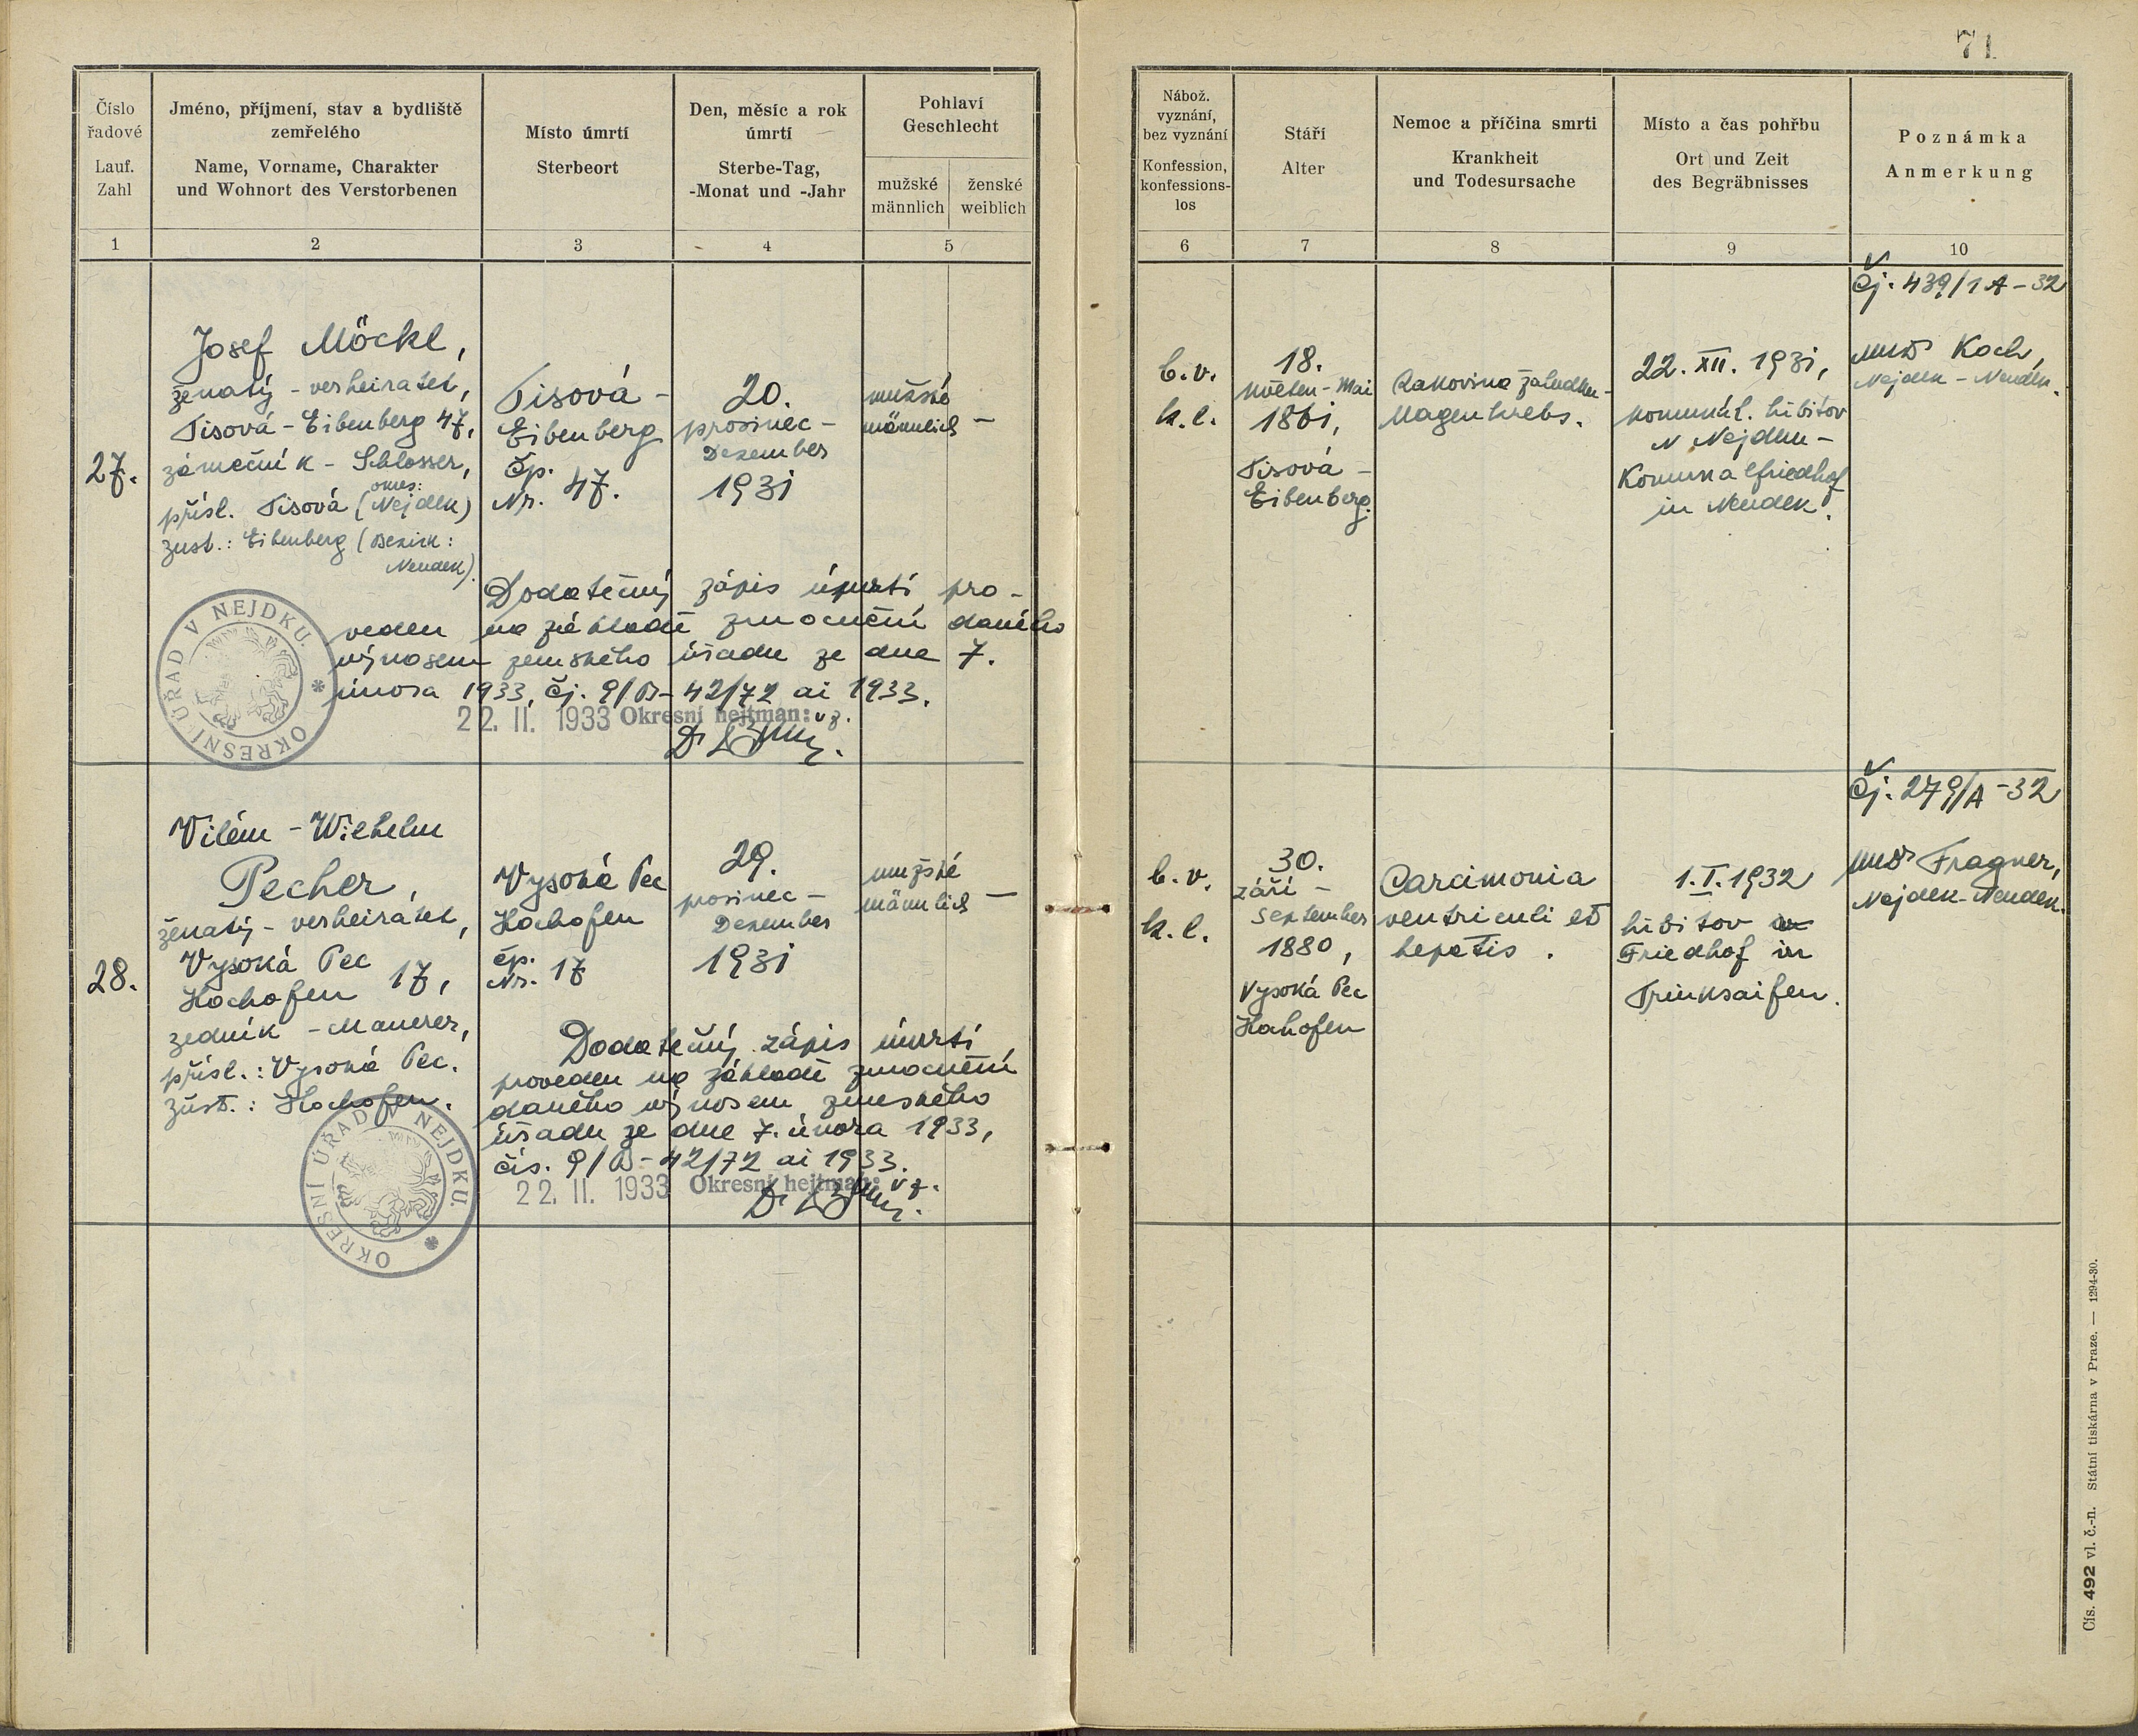 71
Číslo
řadové
Lauf.
Zahl
Jméno, příjmení, stav a bydliště
zemřelého
Name, Vorname, Charakter
und Wohnort des Verstorbenen
Místo úmrtí
Sterbeort
Den, měsíc a rok
úmrtí
Sterbe-Tag,
-Monat und -Jahr
Pohlaví
Geschlecht
mužské
männlich
ženské
weiblich
Nábož.
vyznání,
bez vyznání
Konfession,
konfessions-
los
Stáří
Alter
Nemoc a příčina smrti
Krankheit
und Todesursache
Místo a čas pohřbu
Ort und Zeit
des Begräbnisses
Poznámka
Anmerkung
1 2 3 4 5 6 7 8 9 10
27.
Josef Möckl,
ženatý - verheiratet,
Tisová - Eibenberg 47,
zámečník - Schlosser,
přísl. Tisová (okres: Nejdek)
zust.: Eibenberg (Bezirk:
Neudek).
Tisová -
Eibenberg
čp.
Nr. 47.
20.
prosinec -
Dezember
1931
mužské
männlich
—
b.v.
k.l.
18.
květen - Mai
1861,
Tisová -
Eibenberg.
Rakovina žaludku -
Magenkrebs.
22. XII. 1931,
komunál. hřbitov
v Nejdku -
Komunalfriedhof
in Neudek.
Čj. 439/1 A - 32
MUDr Koch,
Nejdek - Neudek.
Dodatečný zápis úmrtí pro-
veden na základě zmocnění daného
výnosem zemského úřadu ze dne 7.
února 1933, čj. 9/B - 42/72 ai 1933.
22. II. 1933 Okresní hejtman: v z.
OKRESNÍ ÚŘAD V NEJDKU. *
28.
Vilém - Wilhelm
Pecher,
ženatý - verheiratet,
Vysoká Pec
Hochofen 17,
zedník - Maurer,
přísl.: Vysoká Pec.
zúst.: Hochofen.
Vysoká Pec
Hochofen
čp.
Nr. 17
29.
prosinec -
Dezember
1931
mužské
männlich
—
b.v.
k.l.
30.
září -
September
1880,
Vysoká Pec
Hohofen
Carcimonia
ventriculi et
hepatis.
1. I. 1932
hřbitov
Friedhof in
Trinksaifen.
Čj. 279/A - 32
MUDr Fragner,
Nejdek - Neudek.
Dodatečný zápis úmrtí
proveden na základě zmocnění
daného výnosem zemského
úřadu ze dne 7. února 1933,
čís. 9/B - 42/72 ai 1933.
22. II. 1933 Okresní hejtman: v z.
OKRESNÍ ÚŘAD V NEJDKU. *
Čís. 492 vl. č.-n. Státní tiskárna v Praze. — 1294-30.